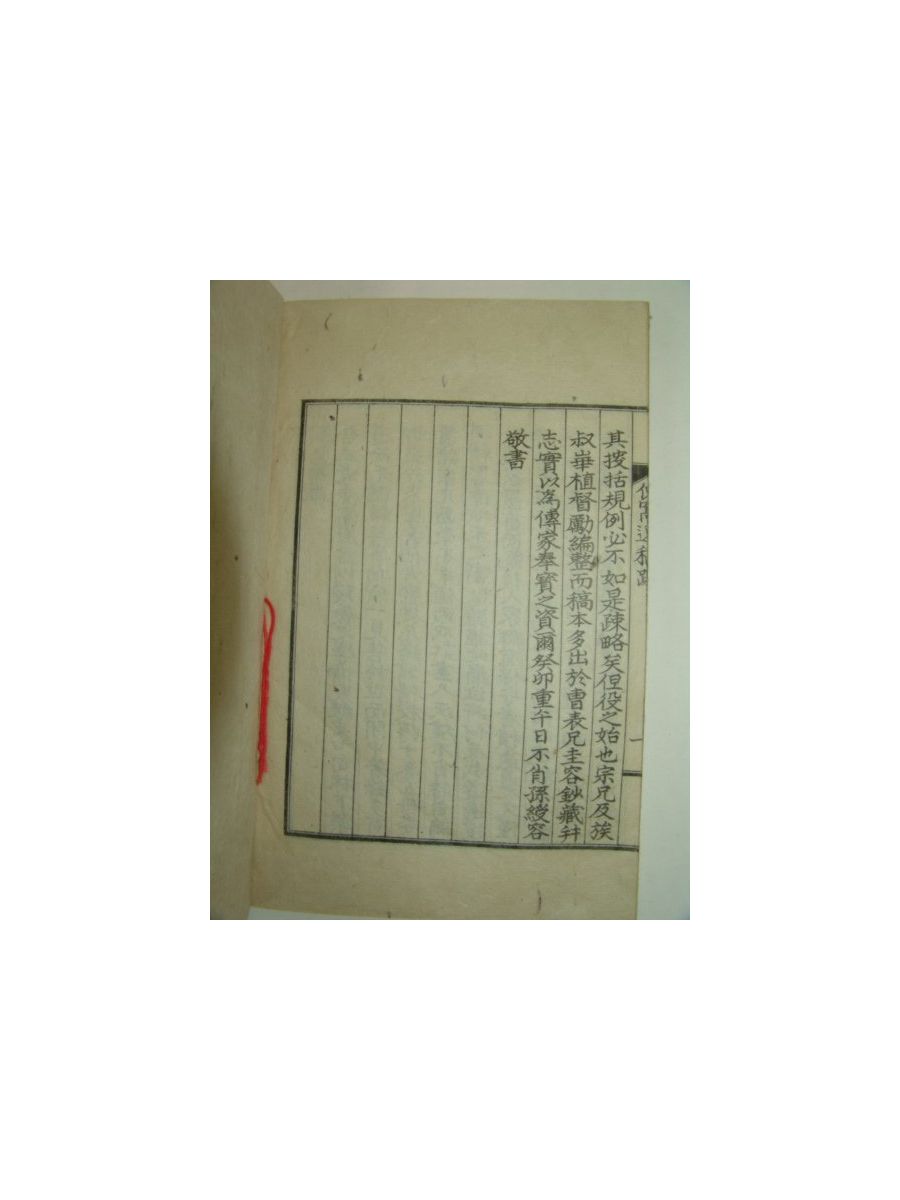 其按括規例必不如是疎略矣但役之始也宗兄及族
叔崋植督勵編整而稿本多出於曺表兄圭容鈔藏幷
志實以爲傳家奉寶之資爾癸卯重午日不肖孫綬容
敬書
遺稿跋
一